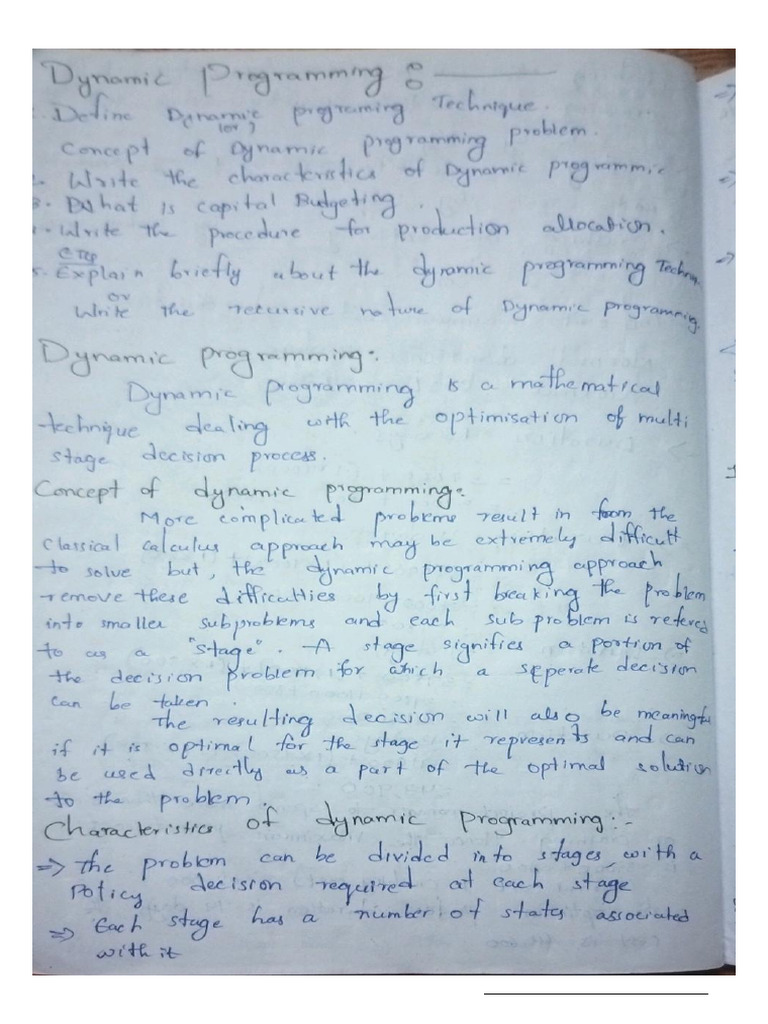 Dynamic Programming :
1. Define Dynamic programing Technique.
(or)
Concept of Dynamic programming problem.
2. Write the characteristics of Dynamic programmic
3. What is capital Budgeting.
4. Write the procedure for production allocation.
5. Explain briefly about the dynamic programming Techni
or
Write the recursive nature of Dynamic programming.
Dynamic programming:.
Dynamic programming is a mathematical
technique dealing with the optimisation of multi
stage decision process.
Concept of dynamic programming:
More complicated problems result in from the
classical calculus approach may be extremely difficult
to solve but, the dynamic programming approach
remove these difficulties by first breaking the problem
into smaller subproblems and each sub problem is refered
to as a "stage". A stage signifies a portion of
the decision problem for which a seperate decision
can be taken.
The resulting decision will also be meaningful
if it is optimal for the stage it represents and can
be used directly as a part of the optimal solution
to the problem.
Characteristics of dynamic programming:-
=> The problem can be divided into stages, with a
policy decision required at each stage
=> Each stage has a number of states associated
with it